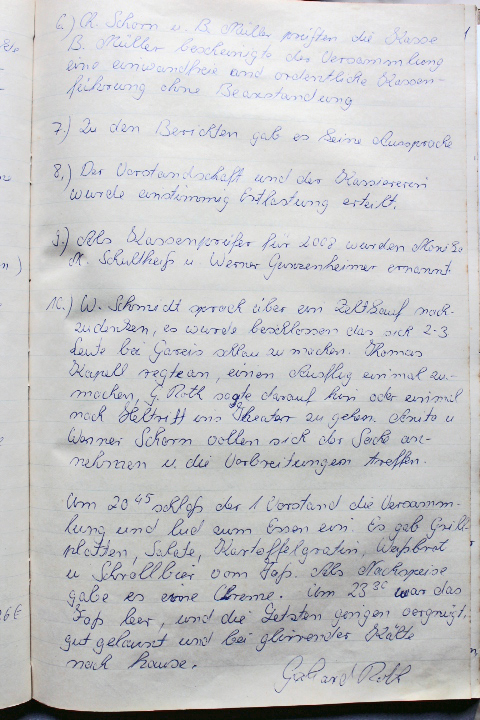 6.) A. Schorn u. B. Müller prüften die Kasse
B. Müller bescheinigte der Versammlung
eine einwandfreie und ordentliche Kassen-
führung ohne Beanstandung
7.) Zu den Berichten gab es keine Aussprache
8.) Der Vorstandschaft und der Kassiererin
wurde einstimmig Entlastung erteilt.
9.) Als Kassenprüfer für 2008 wurden
A. Schultheiß u Werner Gunzenheimer ernannt
10.) W. Schmidt sprach über ein Zeltkauf nach-
zudenken, es wurde beschlossen das sich 2-3
Leute bei Gareis schlau zu machen. Thomas
Kapell regte an, einen Ausflug einmal zu-
machen, G. Roth sagte darauf hin oder einmal
nach ins Theater zu gehen. Anita u
Werner Schorn wollen sich der Sache an-
nehmen u. die Vorbreitungen treffen.
Um 20 45 schloß der 1 Vorstand die Versamm-
lung und lud zum Essen ein. Es gab Grill-
platten, Salate, Kartoffelgratin, Weißbrot
u Schrollbier vom Faß. Als Nachspeise
gabe es eine Chreme. Um 23 30 war das
Faß leer, und die Letzten gingen vergnügt,
gut gelaunt und bei glirrender Kälte
nach hause.
Gerhard Roth